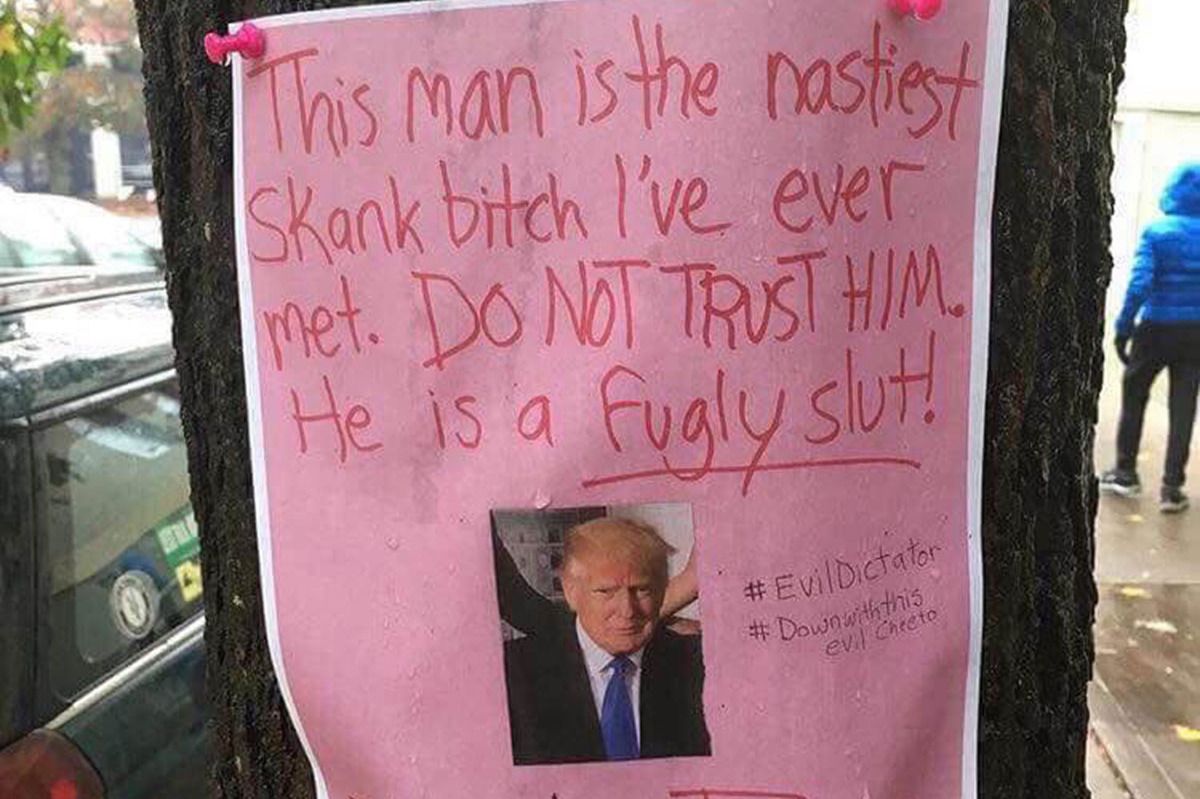 This man is the nastiest
skank bitch I've ever
met. DO NOT TRUST HIM.
He is a fugly slut!
#EvilDictator
#Downwiththis
evil Cheeto